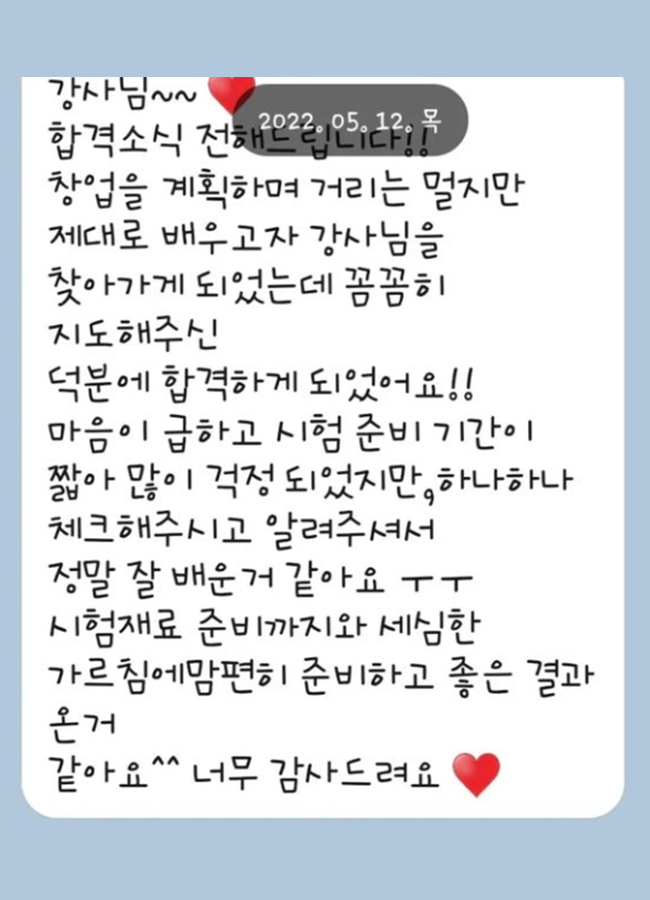 강사님~~ ❤️
2022. 05. 12. 목
합격소식 전해드립니다!!
창업을 계획하며 거리는 멀지만
제대로 배우고자 강사님을
찾아가게 되었는데 꼼꼼히
지도해주신
덕분에 합격하게 되었어요!!
마음이 급하고 시험 준비 기간이
짧아 많이 걱정 되었지만,하나하나
체크해주시고 알려주셔서
정말 잘 배운거 같아요 ㅜㅜ
시험재료 준비까지와 세심한
가르침에맘편히 준비하고 좋은 결과
온거
같아요^^ 너무 감사드려요 ❤️